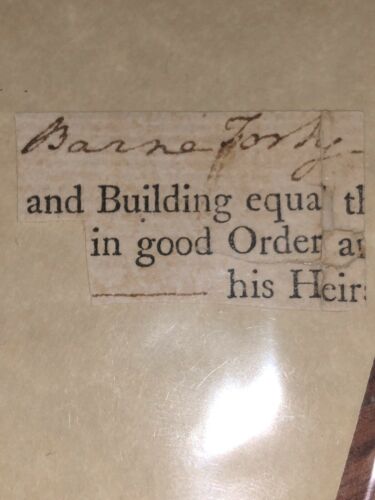 Barne Forty
and Building equal th
in good Order a
his Heirs